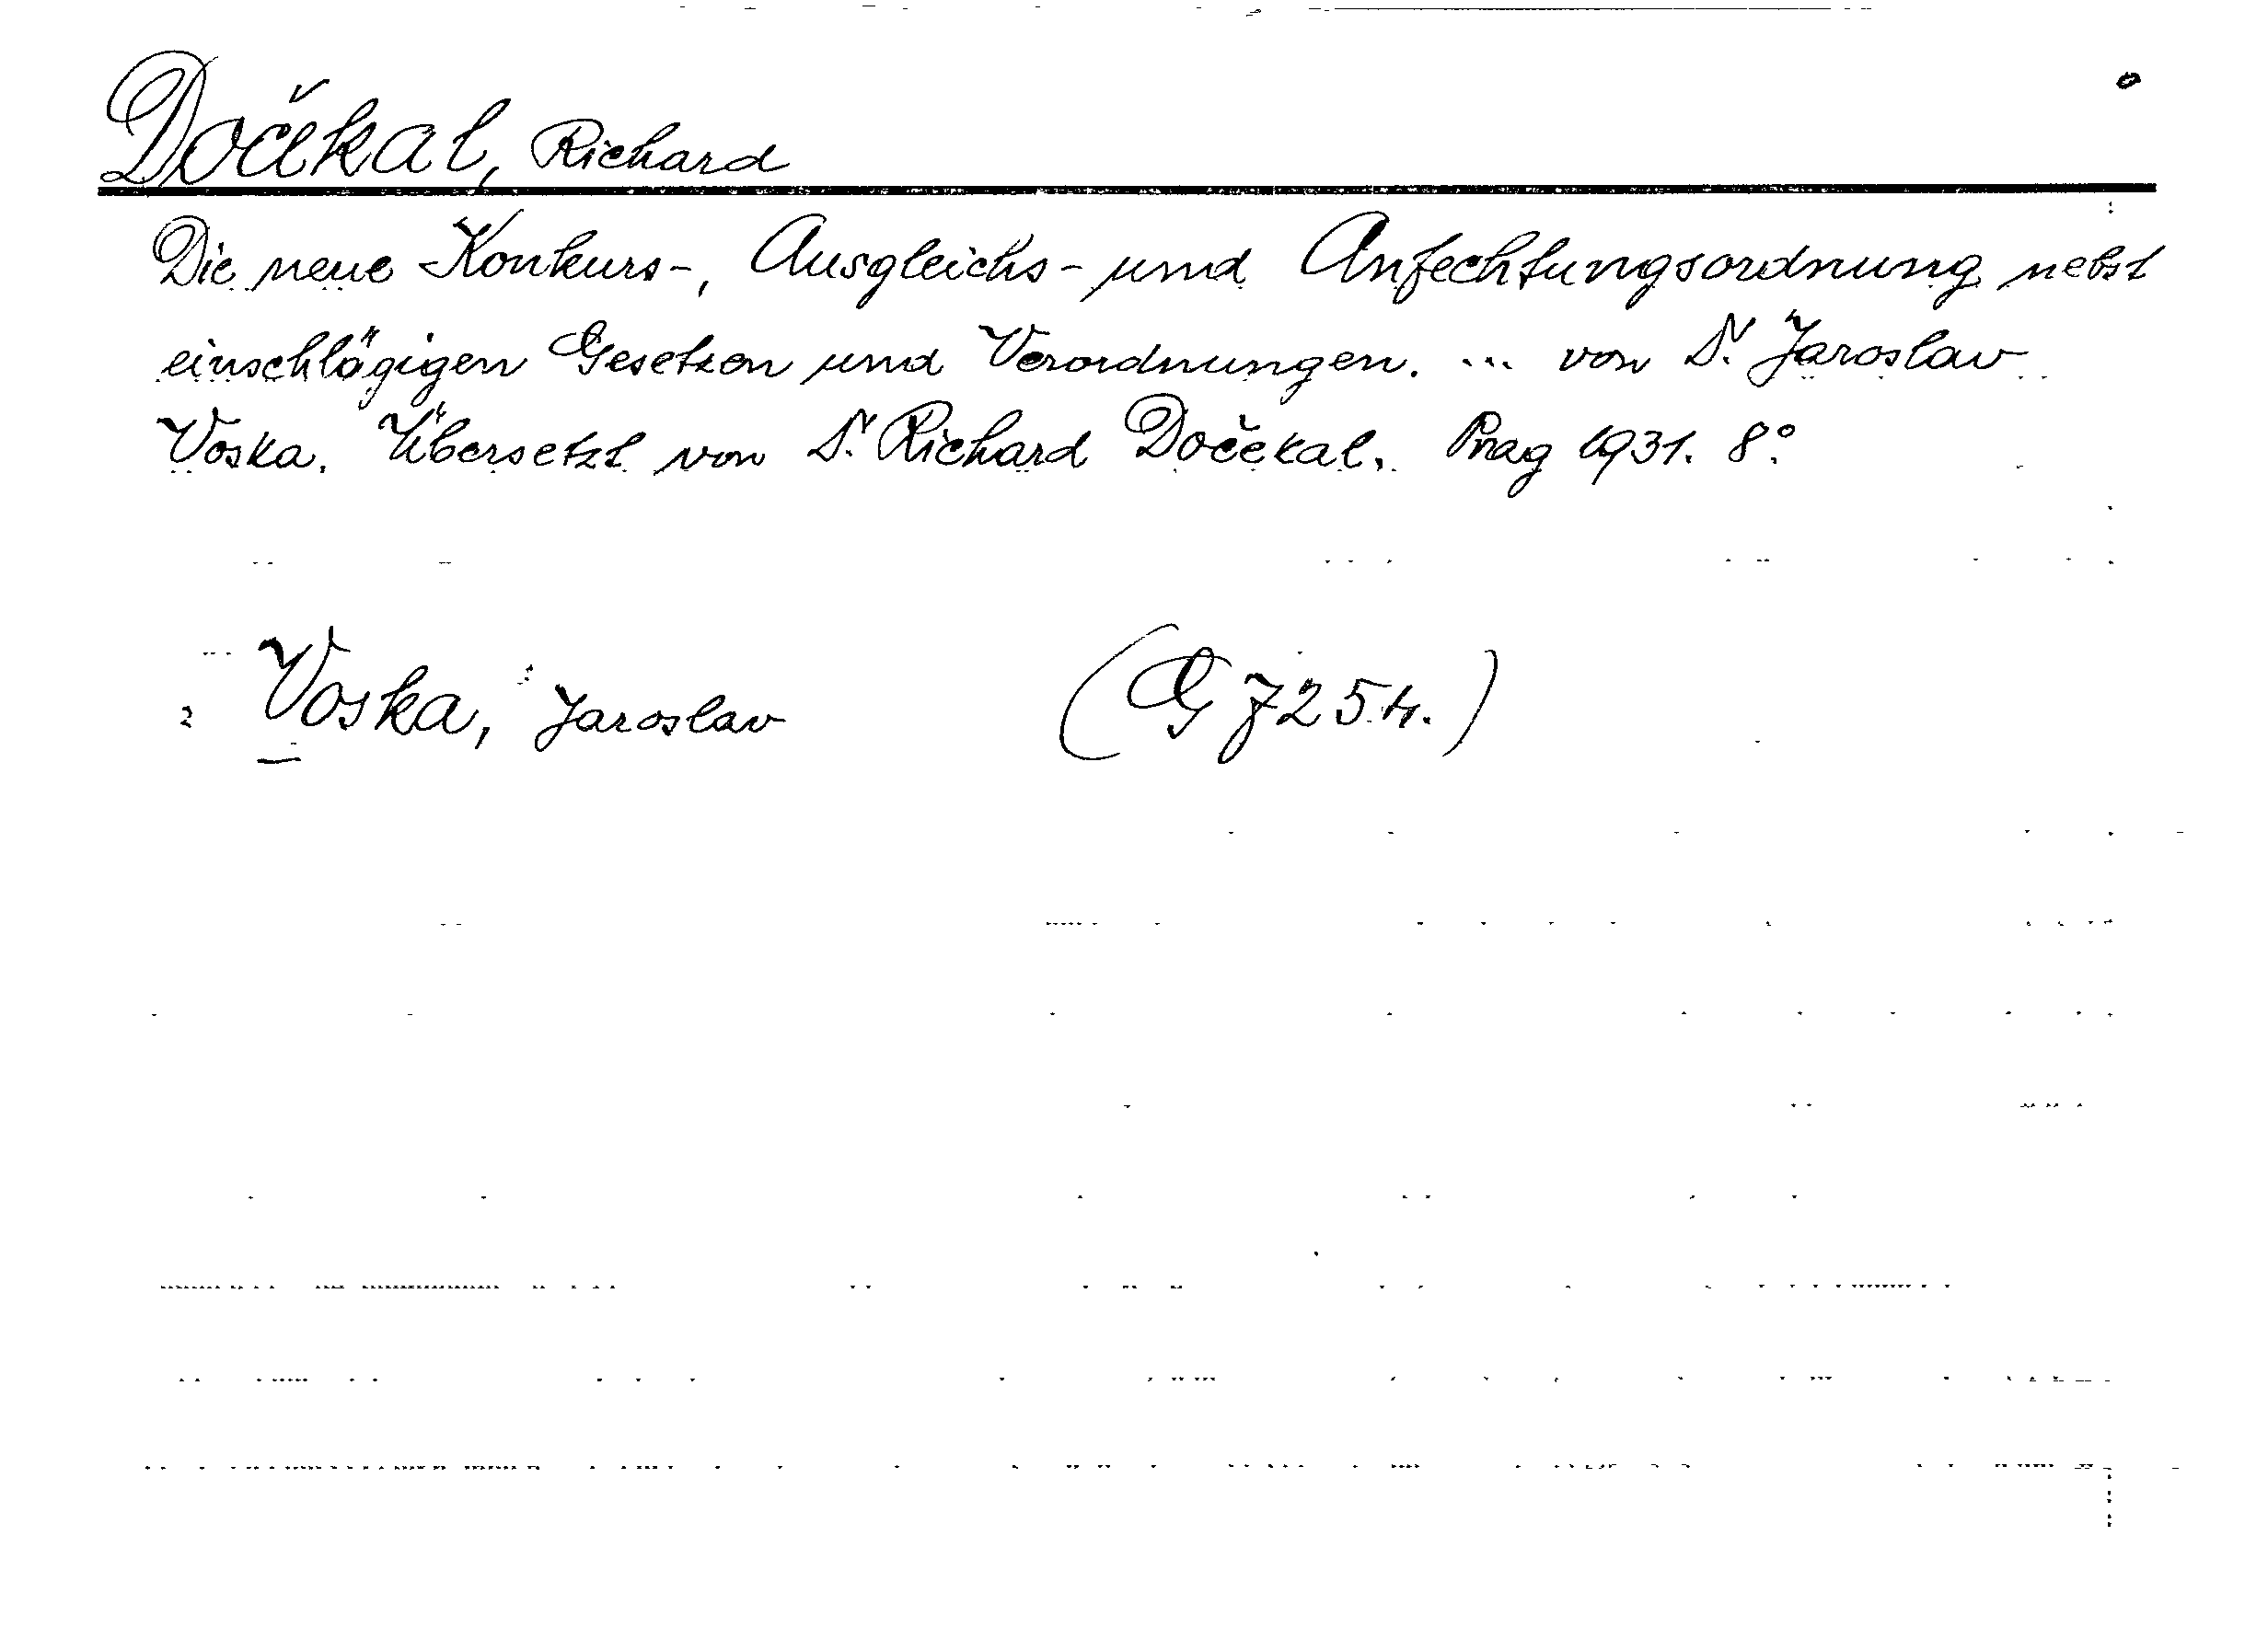 Dočekal, Richard
Die neue Konkurs-, Ausgleichs- und Anfechtungsordnung nebst
einschlägigen Gesetzen und Verordnungen. ... von Dr. Jaroslav
Voska. Übersetzt von Dr. Richard Dočekal. Prag 1931. 8°.
Voska, Jaroslav (G 7254.)